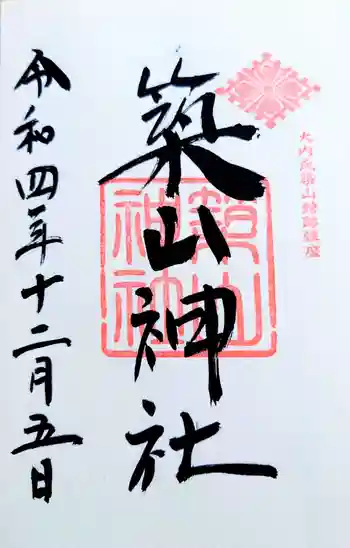 大内氏築山跡鎮座
築山神社
築山神社
令和四年十二月五日